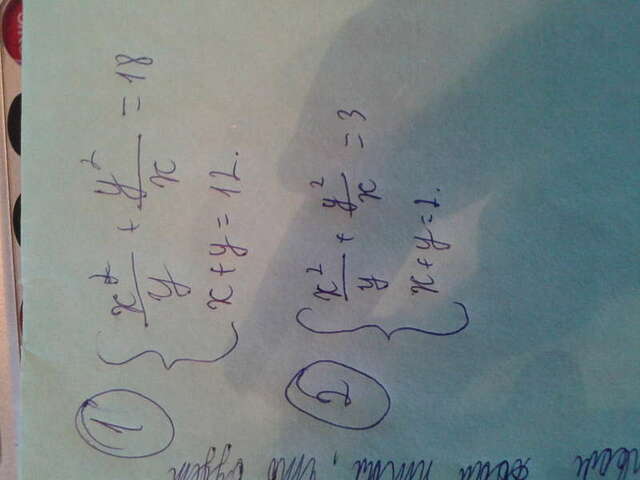 1
x²/y + y²/x = 18
x + y = 12.
2
x²/y + y²/x = 3
будет